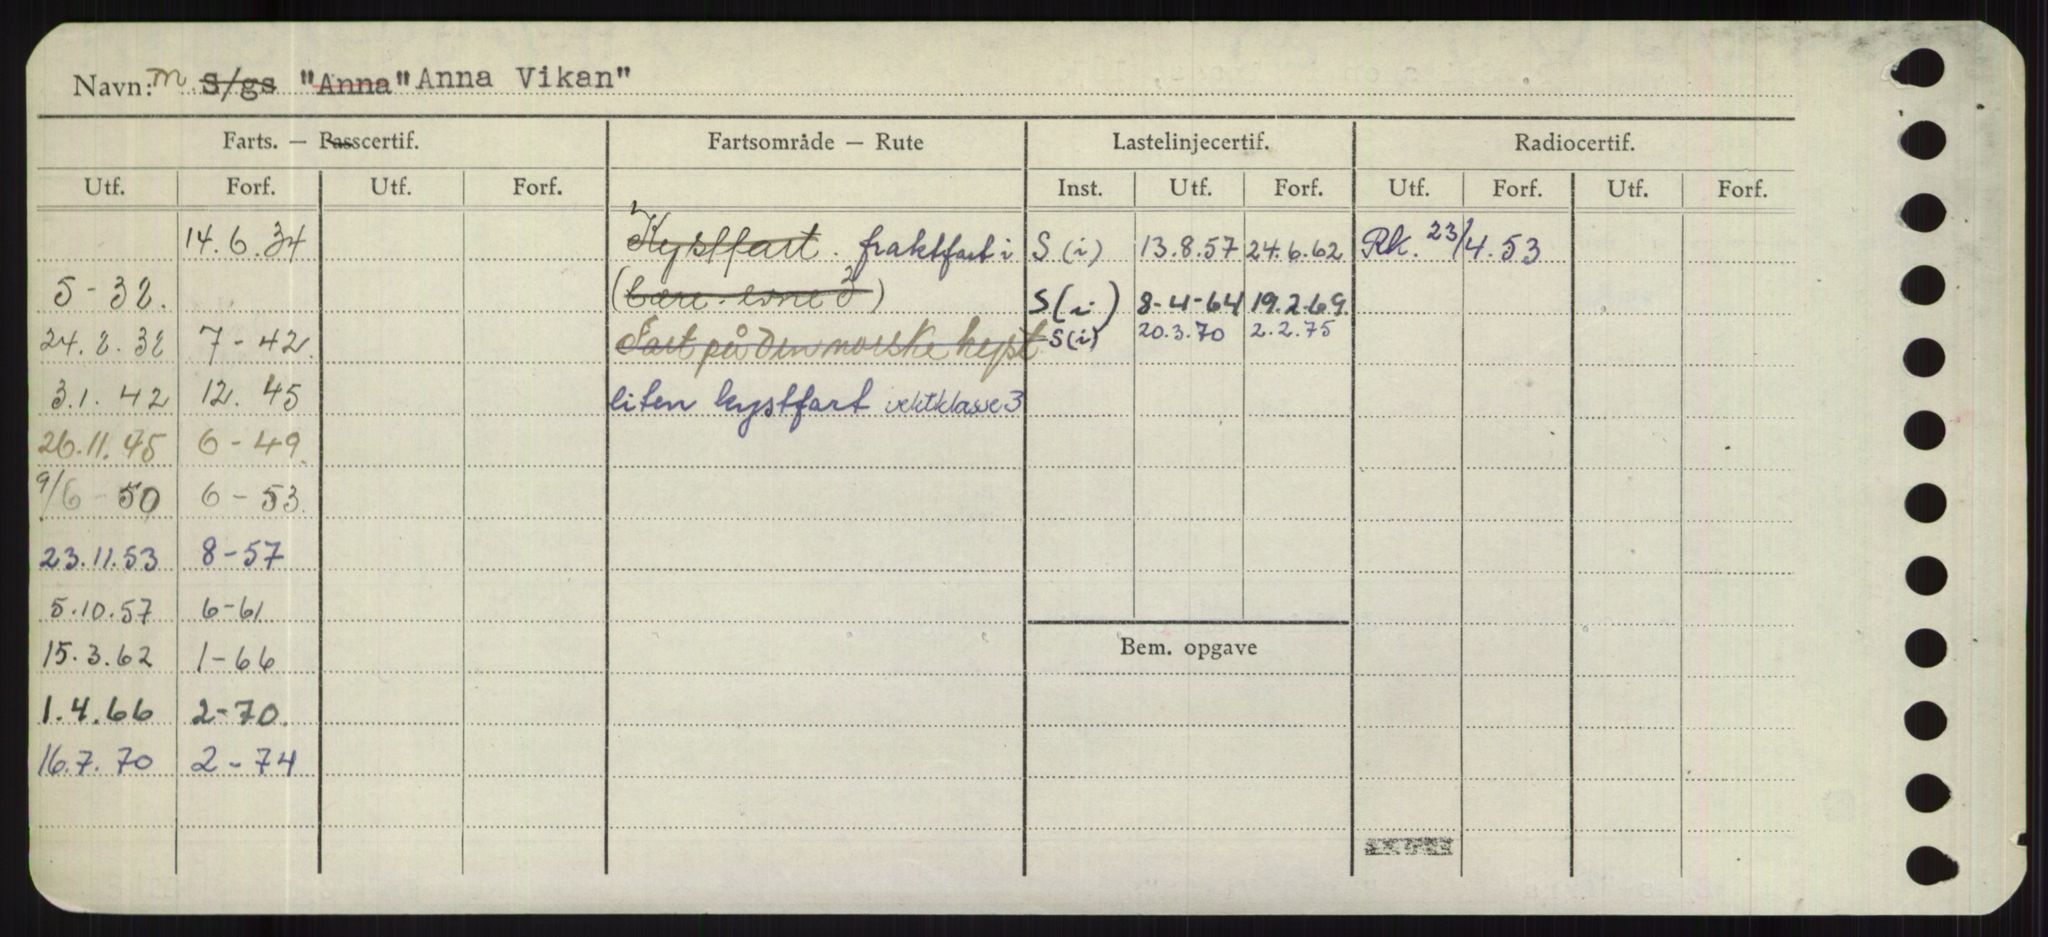 Navn: m S/gs "Anna" Anna Vikan"
Farts. — Passcertif. Fartsområde — Rute Lastelinjecertif. Radiocertif.
Utf. Forf. Utf. Forf. Inst. Utf. Forf. Utf. Forf. Utf. Forf.
14.6.34 Kystfart. fraktfart i S (i) 13.8.57 24.6.62 Rk. 23/4.53
5-38. S(i) 8-4-64 19.2.69.
24.8.38 7-42. Fart på den norske kyst S(i) 20.3.70 2.2.75
3.1.42 12.45 liten kystfart vektklasse 3
26.11.45 6-49.
9/6-50 6-53.
23.11.53 8-57
5.10.57 6-61
Bem. opgave
15.3.62 1-66
1.4.66 2-70.
16.7.70 2-74